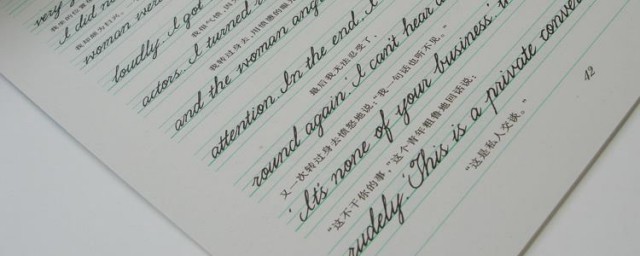 very
I did no
woman were
loudly. I got
actors. I turned r
我转过身去,用愤怒的
and the woman ang
attention. In the end, I
最后我无法忍受了。
round again. 'I can't hear a
又一次转过身去愤怒地说:“我一句话也听不见。”
'It's none of your business,' th
“这不干你的事”这个青年粗鲁地回话说:
rudely. 'This is a private convers
“这是私人交谈。”
42